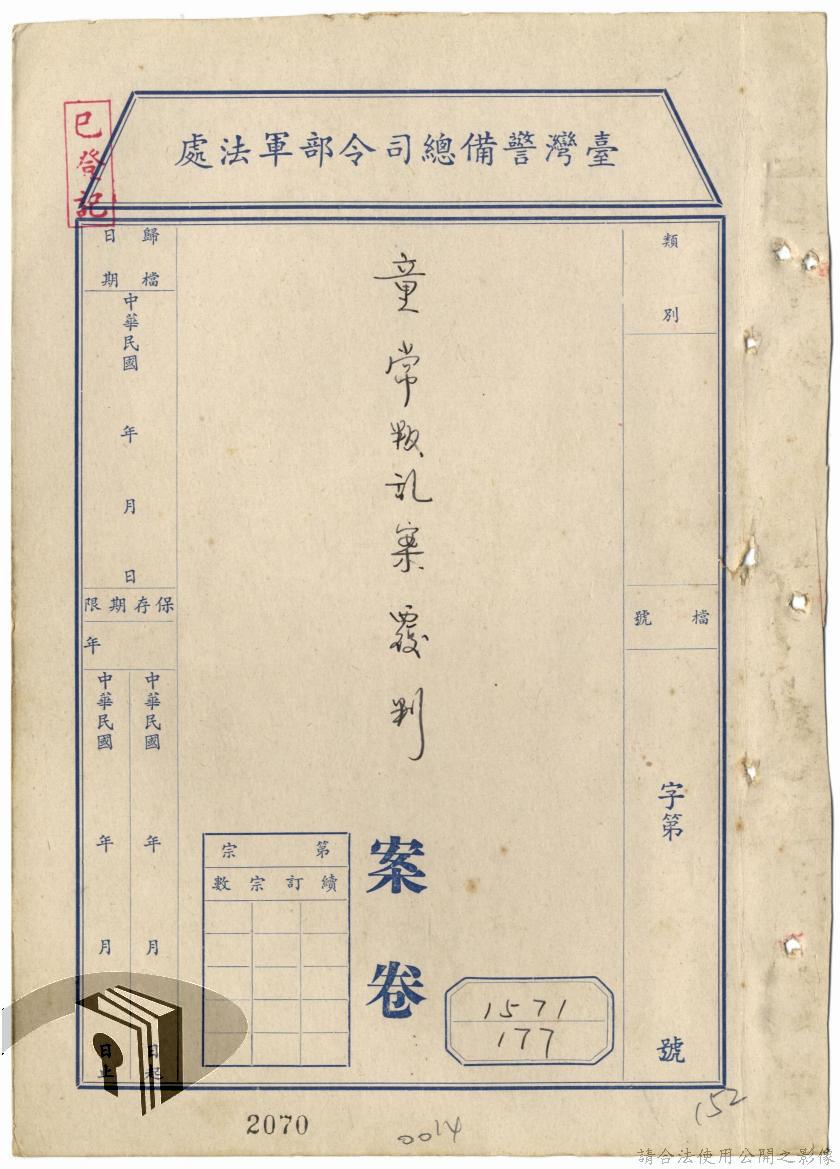 已登記
臺灣警備總司令部軍法處
類別
檔號
字第
號
童常叛乱案覆判
案卷
第宗
續訂宗數
1571
177
歸檔日期
中華民國
年
月
日
保存期限
年
中華民國
年
月
日起
中華民國
年
月
日止
2070
0014
152
請合法使用公開之影像